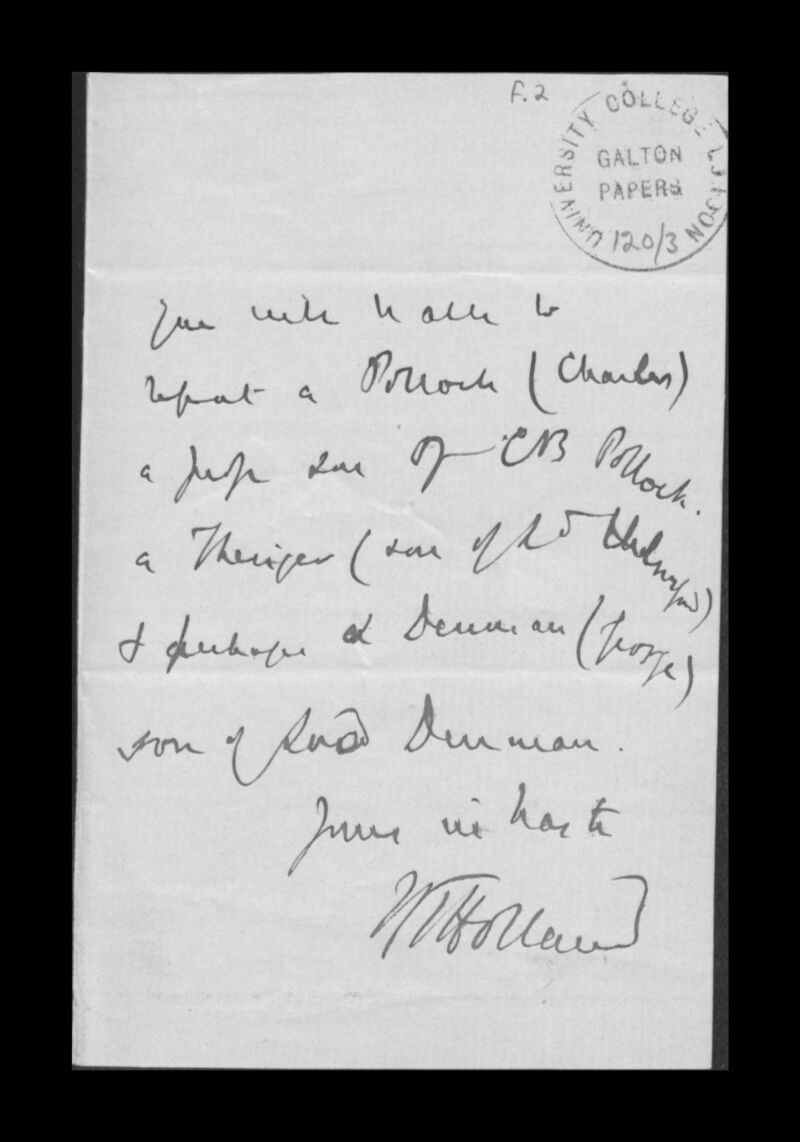 F.2
UNIVERSITY COLLEGE LONDON
GALTON
PAPERS
120/3
You will have to
repeat a Pollock (Charles)
a Judge son of CB Pollock.
a Thesiger (son of Ld Chelmsford)
& perhaps a Denman (George)
son of Lord Denman.
Yours in haste
Holland